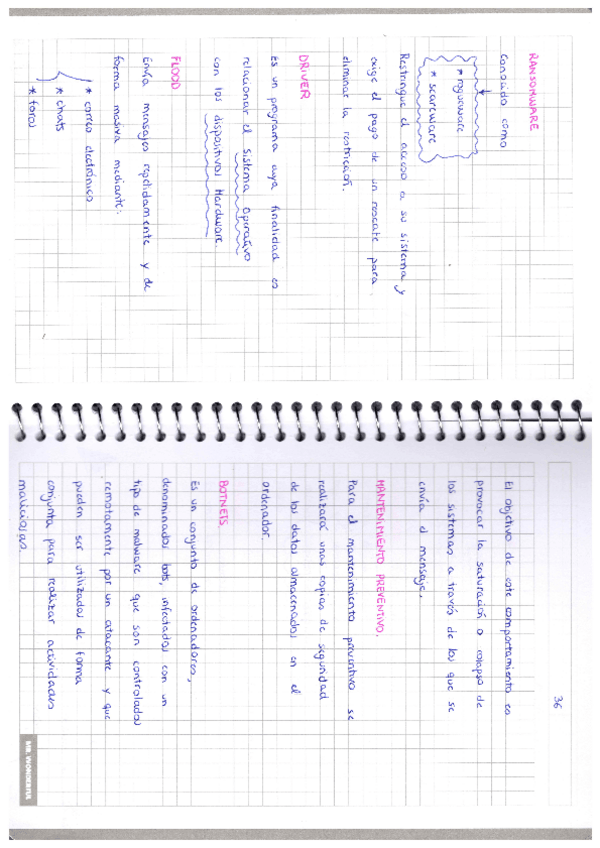 RANSOMWARE
Conocido como
* rogueware
* scareware
Restringue el acceso a su sistema y
exige el pago de un rescate para
eliminar la restricción.
DRIVER
Es un programa cuya finalidad es
relacionar el sistema operativo
con los dispositivos Hardware.
FLOOD
Envía mensajes repetidamente y de
forma masiva mediante:
* correo electrónico
* chats
* foros
36
El objetivo de este comportamiento es
provocar la saturación o colapso de
los sistemas a través de los que se
envía el mensaje.
MANTENIMIENTO PREVENTIVO.
Para el mantenimiento preventivo se
realizará unas copias de seguridad
de los datos almacenados en el
ordenador.
BOTNETS.
Es un conjunto de ordenadores,
denominados bots, infectados con un
tipo de malware que son controlados
remotamente por un atacante y que
pueden ser utilizados de forma
conjunta para realizar actividades
maliciosas.
MR. WONDERFUL